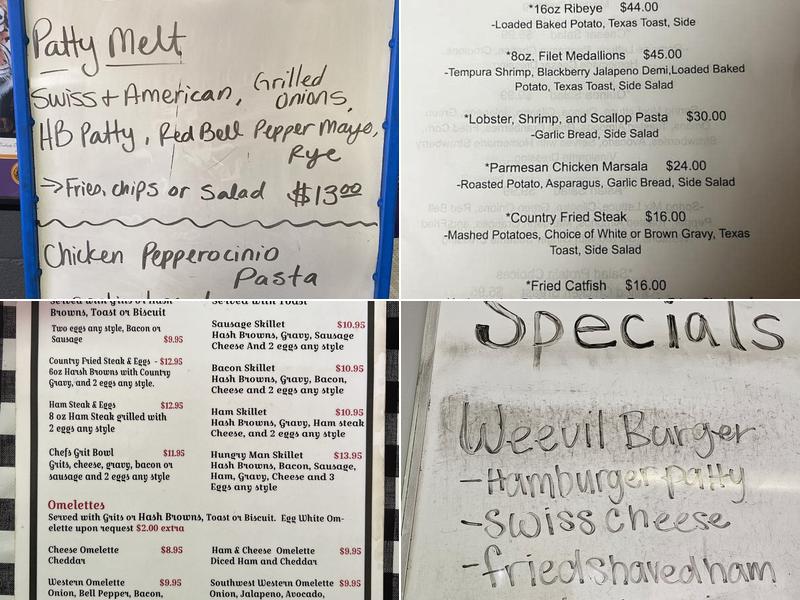 Patty Melt
Swiss + American, Grilled
Onions,
HB Patty, Red Bell Pepper Mayo,
Rye
→ Fries, chips or Salad $13.00
Chicken Pepperocinio
Pasta
*16oz Ribeye $44.00
-Loaded Baked Potato, Texas Toast, Side
*8oz. Filet Medallions $45.00
-Tempura Shrimp, Blackberry Jalapeno Demi,Loaded Baked
Potato, Texas Toast, Side Salad
*Lobster, Shrimp, and Scallop Pasta $30.00
-Garlic Bread, Side Salad
*Parmesan Chicken Marsala $24.00
-Roasted Potato, Asparagus, Garlic Bread, Side Salad
*Country Fried Steak $16.00
-Mashed Potatoes, Choice of White or Brown Gravy, Texas
Toast, Side Salad
*Fried Catfish $16.00
Served with Grits or Hash
Browns, Toast or Biscuit
Two eggs any style, Bacon or
Sausage $9.95
Country Fried Steak & Eggs - $12.95
6oz Harsh Browns with Country
Gravy, and 2 eggs any style.
Ham Steak & Eggs $12.95
8 oz Ham Steak grilled with
2 eggs any style
Chefs Grit Bowl $11.95
Grits, cheese, gravy, bacon or
sausage and 2 eggs any style
Served with Toast
Sausage Skillet $10.95
Hash Browns, Gravy, Sausage
Cheese And 2 eggs any style
Bacon Skillet $10.95
Hash Browns, Gravy, Bacon,
Cheese and 2 eggs any style
Ham Skillet $10.95
Hash Browns, Gravy, Ham steak
Cheese, and 2 eggs any style
Hungry Man Skillet $13.95
Hash Browns, Bacon, Sausage,
Ham, Gravy, Cheese and 3
Eggs any style
Omelettes
Served with Grits or Hash Browns, Toast or Biscuit. Egg White Om-
elette upon request $2.00 extra
Cheese Omelette $8.95
Cheddar
Ham & Cheese Omelette $9.95
Diced Ham and Cheddar
Western Omelette $9.95
Onion, Bell Pepper, Bacon,
Southwest Western Omelette $9.95
Onion, Jalapeno, Avocado,
Specials
Weevil Burger
-Hamburger patty
-Swiss cheese
-fried shaved ham